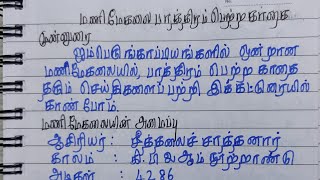 மணிமேகலை பாத்திரம் பெற்ற காதை
முன்னுரை
ஐம்பெருங்காப்பியங்களில் ஒன்றான
மணிமேகலையில், பாத்திரம் பெற்ற காதை
தகும் செய்திகளைப்பற்றி இக்கட்டுரையில்
காண் போம்.
மணிமேகலையின் அமைப்பு
ஆசிரியர் : சீத்தலைச் சாத்தனார்
காலம் : கி.பி 2 ஆம் நூற்றாண்டு
அடிகள் : 4286